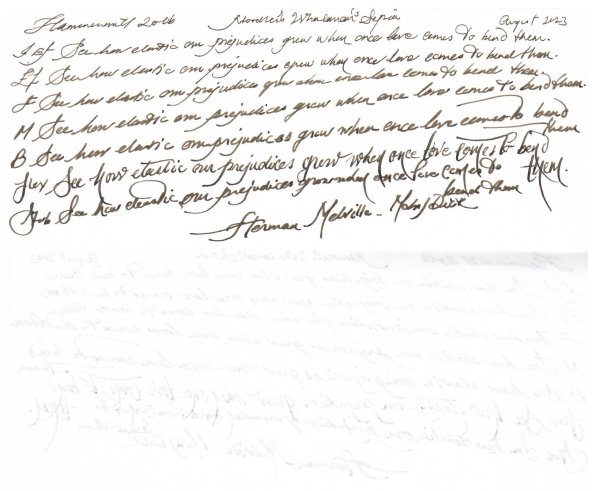 Hammermill 20 lb Mondrel's Whalesman's Sepia August 2023
EF See how elastic our prejudices grow when once love comes to bend them.
Ef See how elastic our prejudices grow when once love comes to bend them.
F See how elastic our prejudices grow when once love comes to bend them.
M See how elastic our prejudices grow when once love comes to bend them.
B See how elastic our prejudices grow when once love comes to bend
them
Fur See how elastic our prejudices grow when once love comes to bend
them.
Stub See how elastic our prejudices grow when once love comes to
bend them
Herman Melville - Moby Dick